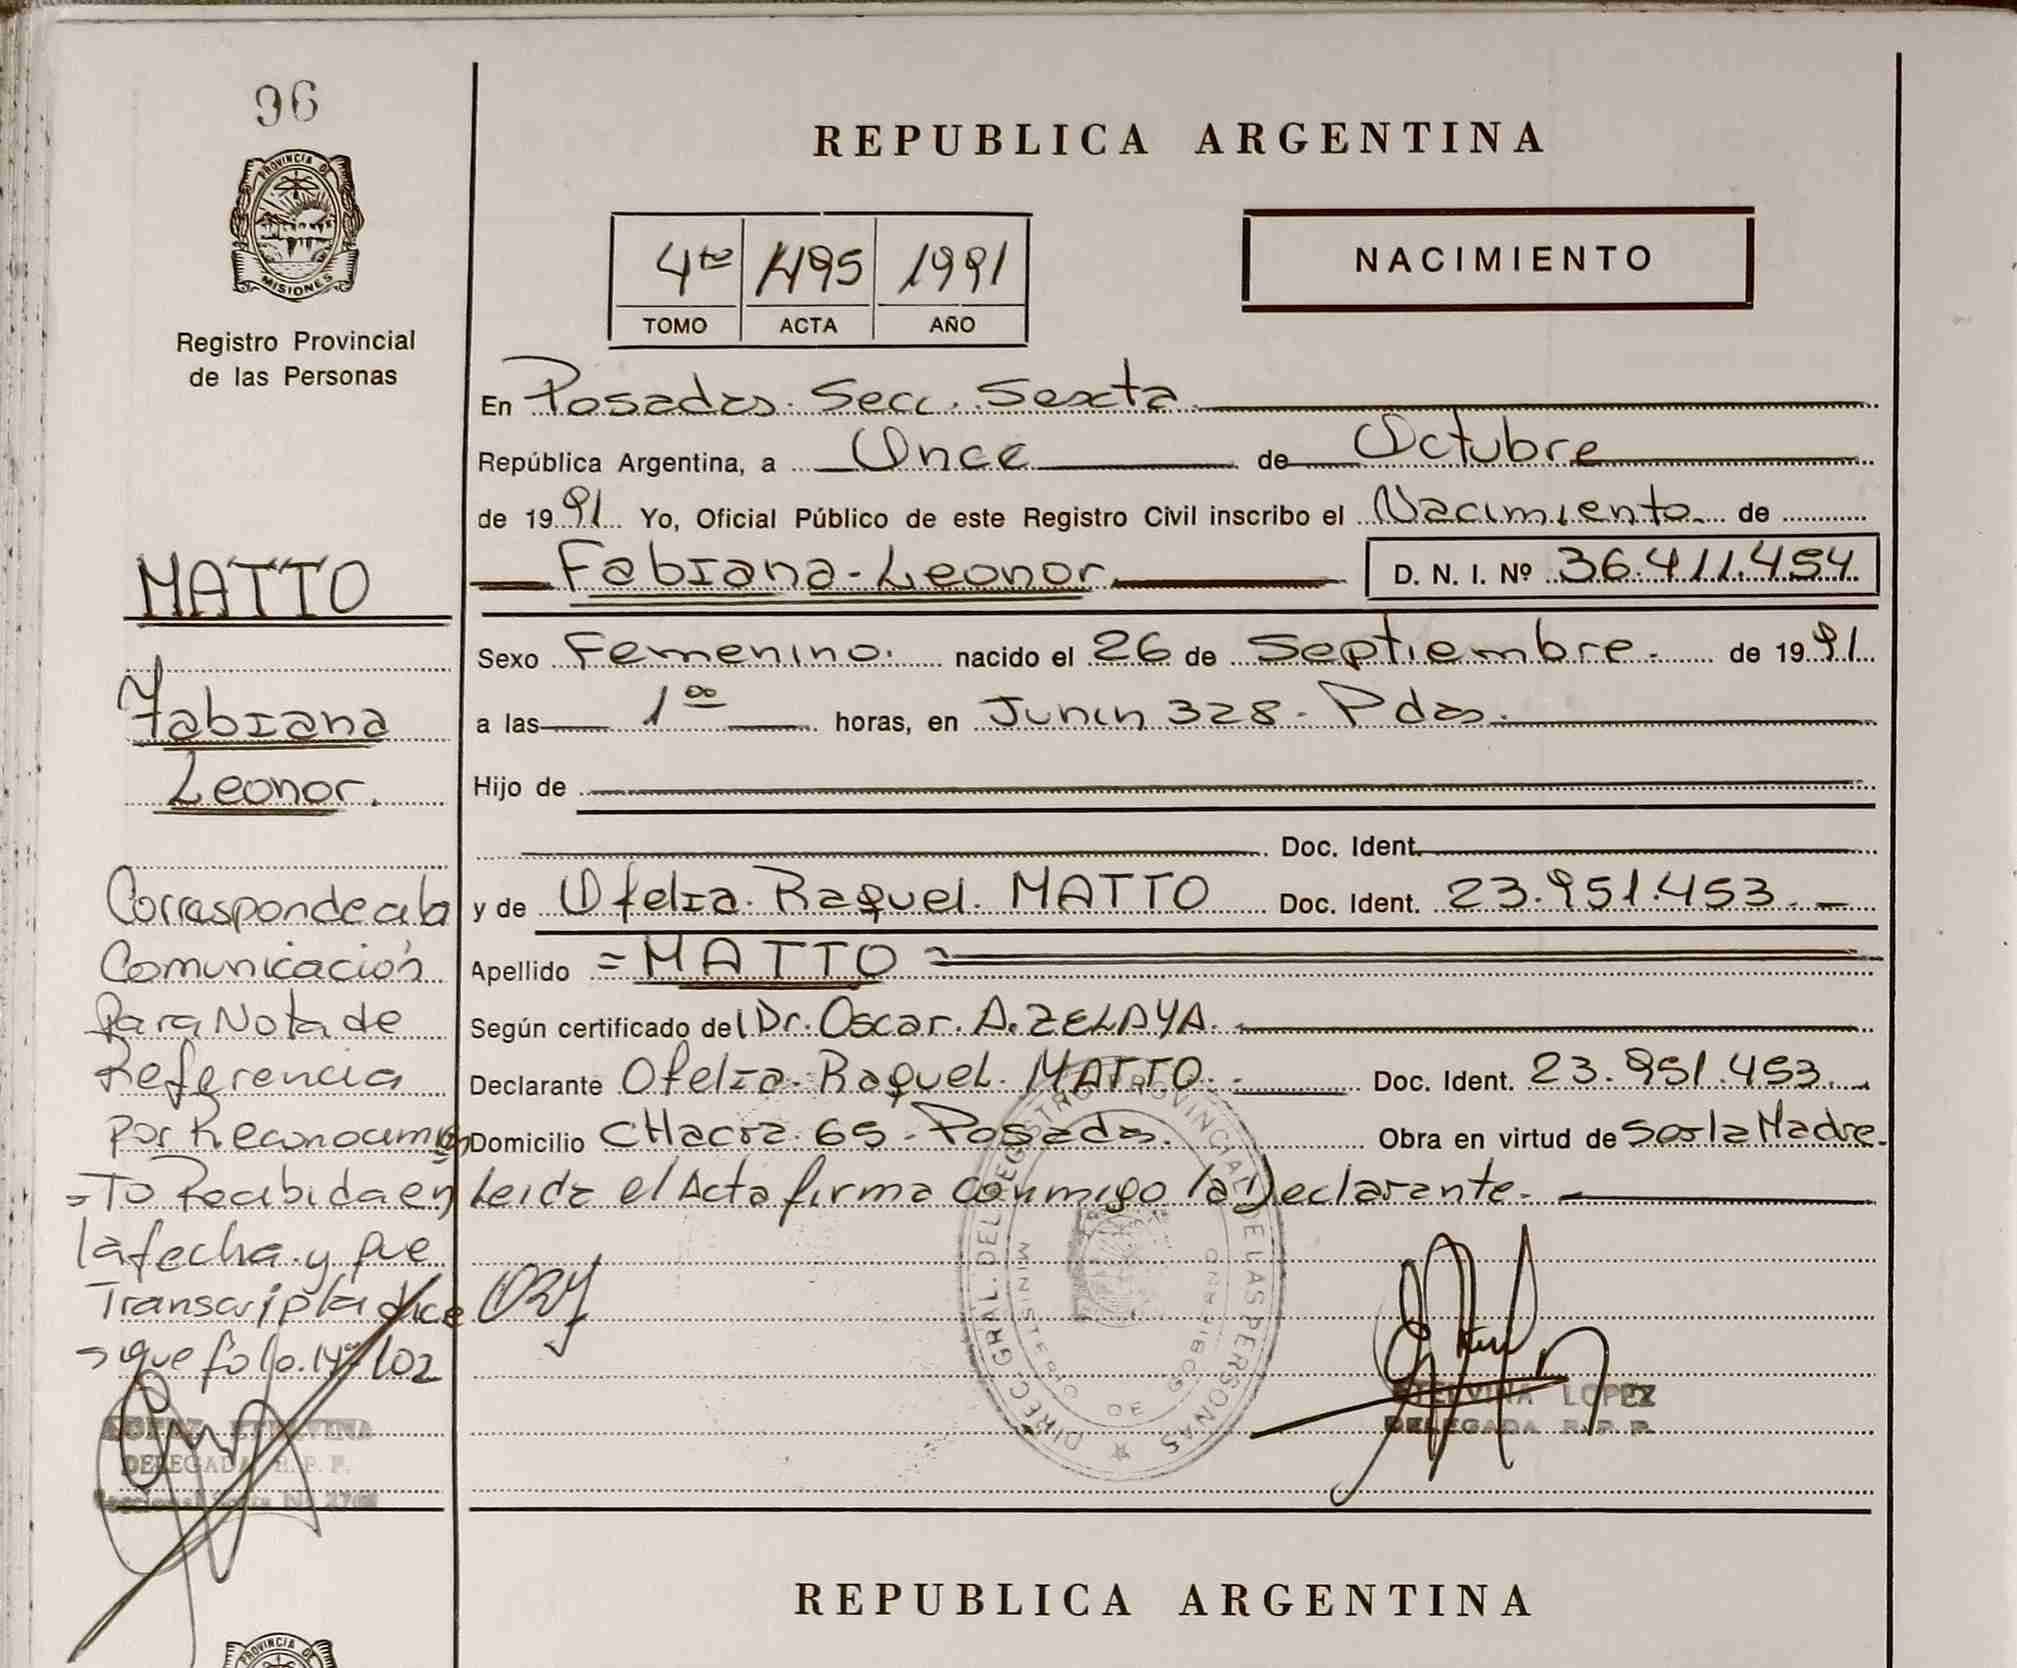 96
PROVINCIA DE
MISIONES
Registro Provincial
de las Personas
REPUBLICA ARGENTINA
4to 1495 1991
TOMO ACTA AÑO
NACIMIENTO
En Posadas. Secc. Sexta
República Argentina, a Once de Octubre
de 1991 Yo, Oficial Público de este Registro Civil inscribo el Nacimiento de
Fabiana-Leonor D. N. I. Nº 36.411.454
Sexo Femenino. nacido el 26 de Septiembre. de 1991
a las 1oo horas, en Junin 328. Pdas.
Hijo de
Doc. Ident.
y de Ofelia. Raquel. MATTO Doc. Ident. 23.951.453.
Apellido =MATTO=
Según certificado del Dr. Oscar. A. ZELAYA.
Declarante Ofelia. Raquel. MATTO. Doc. Ident. 23.951.453.
Domicilio CHacra. 65. Posadas. Obra en virtud de Ser la Madre.
Leida el Acta firma conmigo la Declarante.
MATTO
Fabiana
Leonor.
Corresponde a la
Comunicación
Para Nota de
Referencia
por Reconocimien
=To Recibida en
la fecha. y que
Transcripta dice
sigue folio. Nº 102
LOPEZ ETELVINA
DELEGADA R. P. P.
DIREC. GRAL. DEL REGISTRO PROVINCIAL DE LAS PERSONAS
MINISTERIO DE GOBIERNO
ETELVINA LOPEZ
DELEGADA R. P. P.
REPUBLICA ARGENTINA
PROVINCIA DE